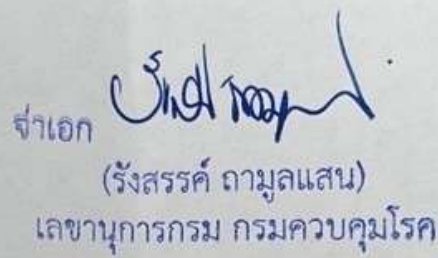 จ่าเอก
(รังสรรค์ ถามูลแสน)
เลขานุการกรม กรมควบคุมโรค